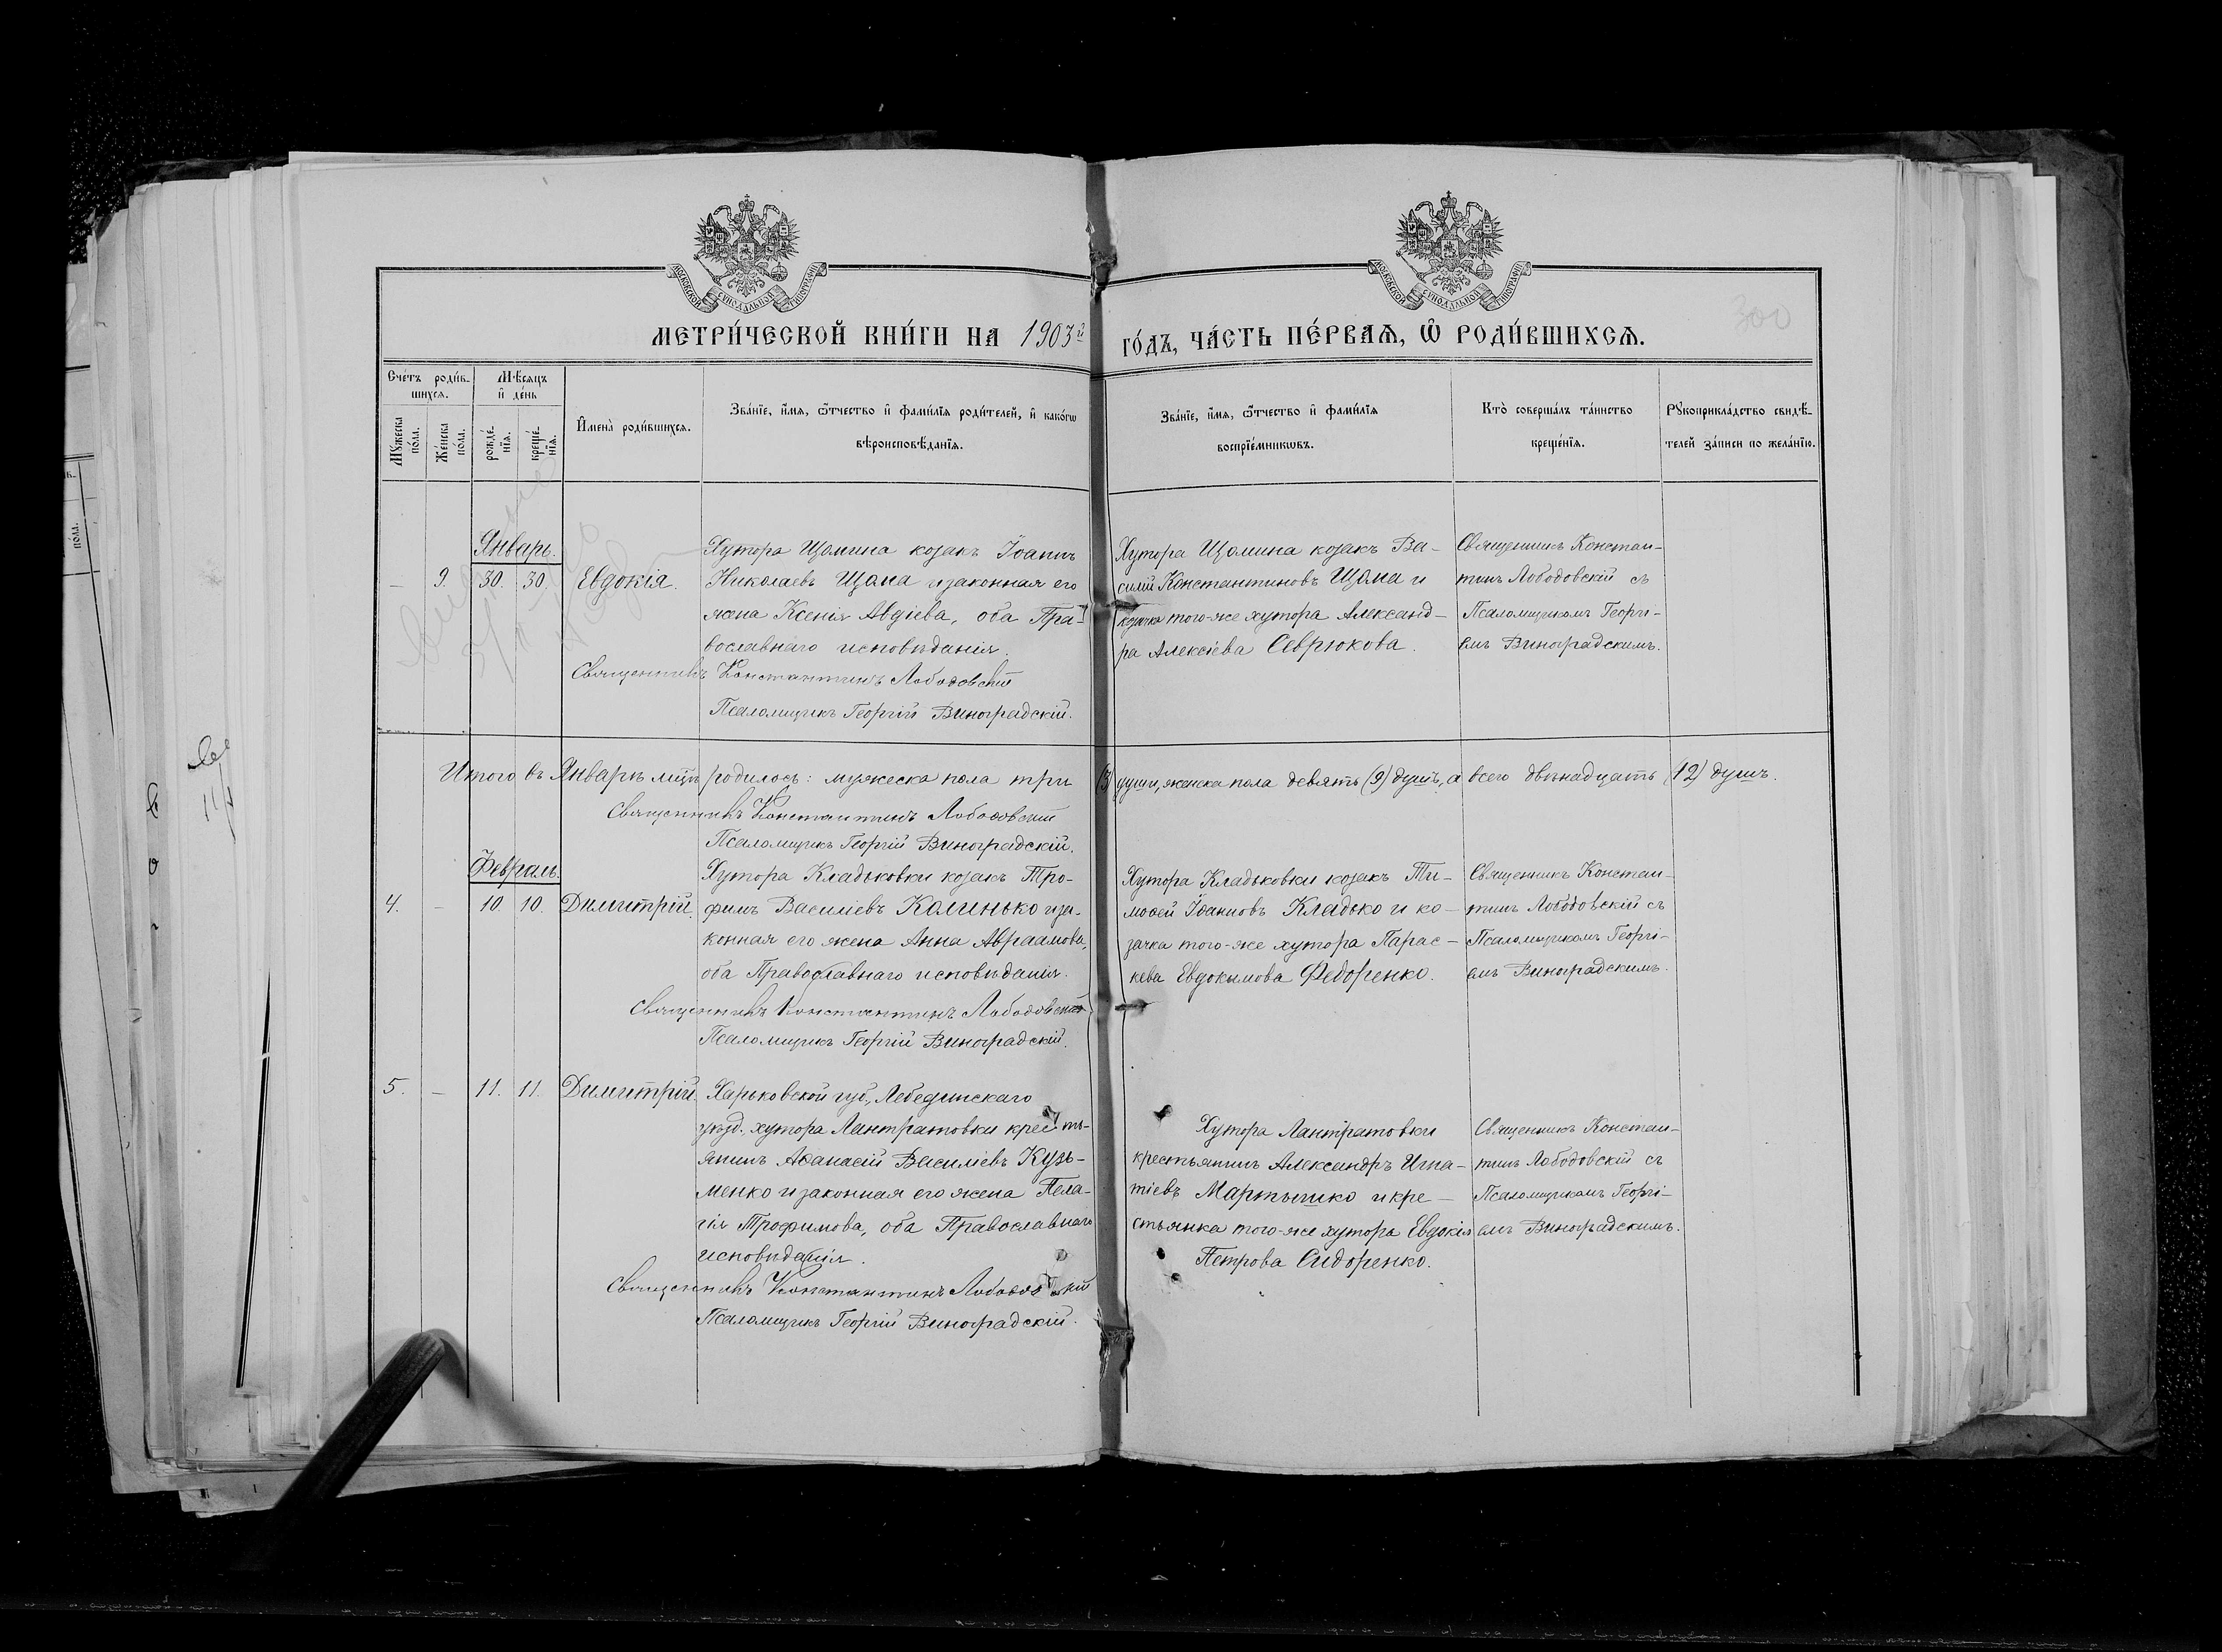 МОСКОВСКОЙ СѴНОДАЛЬНОЙ ТИПОГРАФІИ
МОСКОВСКОЙ СѴНОДАЛЬНОЙ ТИПОГРАФІИ
300
МЕТРИ́ЧЕСКОЙ КНИ́ГИ НА 1903й ГО́ДЪ, ЧА́СТЬ ПЕ́РВАѦ, Ѽ РОДИ́ВШИХСѦ.
Сче́тъ роди́в-
шихсѧ.
Мѣ́сѧцъ
и҆ де́нь
Мꙋ́жеска по́ла.
Же́нска по́ла.
рожде́-
нїѧ.
креще́-
нїѧ.
И҆мена̀ роди́вшихсѧ.
Зва́нїе, и҆́мѧ, ѻ҆́тчество и҆ фами́лїѧ роди́телей, и҆ како́гѡ
вѣроисповѣ́данїѧ.
Зва́нїе, и҆́мѧ, ѻ҆́тчество и҆ фами́лїѧ
воспрїе́мникѡвъ.
Кто̀ соверша́лъ та́инство
креще́нїѧ.
Рꙋкоприкла́дство свидѣ́-
телей за́писи по жела́нїю.
Январь.
— 9. 30. 30. Евдокія.
Хутора Щомина козакъ Іоаннъ
Николаевъ Щома и законная его
жена Ксенія Авдіева, оба Пра-
вославнаго исповѣданія.
Священникъ Константинъ Лободовскій
Псаломщикъ Георгій Виноградскій.
Хутора Щомина козакъ Ва-
силій Константиновъ Щома и
козачка того-же хутора Александ-
ра Алексіева Севрюкова.
Священникъ Констан-
тинъ Лободовскій съ
Псаломщикомъ Георгі-
емъ Виноградскимъ.
Итого въ Январѣ мцѣ родилось: мужеска пола три (3) души, женска пола девять (9) душъ, а всего двѣнадцать (12) душъ.
Священникъ Константинъ Лободовскій
Псаломщикъ Георгій Виноградскій.
Февраль.
4. — 10. 10. Димитрій.
Хутора Кладьковки козакъ Тро-
фимъ Василіевъ Калинько и за-
конная его жена Анна Авраамова,
оба Православнаго исповѣданія.
Священникъ Константинъ Лободовскій
Псаломщикъ Георгій Виноградскій.
Хутора Кладьковки козакъ Ти-
моѳей Іоанновъ Кладько и ко-
зачка того-же хутора Парас-
кева Евдокимова Федоренко.
Священникъ Констан-
тинъ Лободовскій съ
Псаломщикомъ Георгі-
емъ Виноградскимъ.
5. — 11. 11. Димитрій.
Харьковской губ., Лебединскаго
уѣзд., хутора Лантратовки кресть-
янинъ Аѳанасій Василіевъ Кузь-
менко и законная его жена Пела-
гія Трофимова, оба Православнаго
исповѣданія.
Священникъ Константинъ Лободовскій
Псаломщикъ Георгій Виноградскій.
Хутора Лантратовки
крестьянинъ Александръ Игна-
тіевъ Мартышко и кре-
стьянка того-же хутора Евдокія
Петрова Сидоренко.
Священникъ Констан-
тинъ Лободовскій съ
Псаломщикомъ Георгі-
емъ Виноградскимъ.